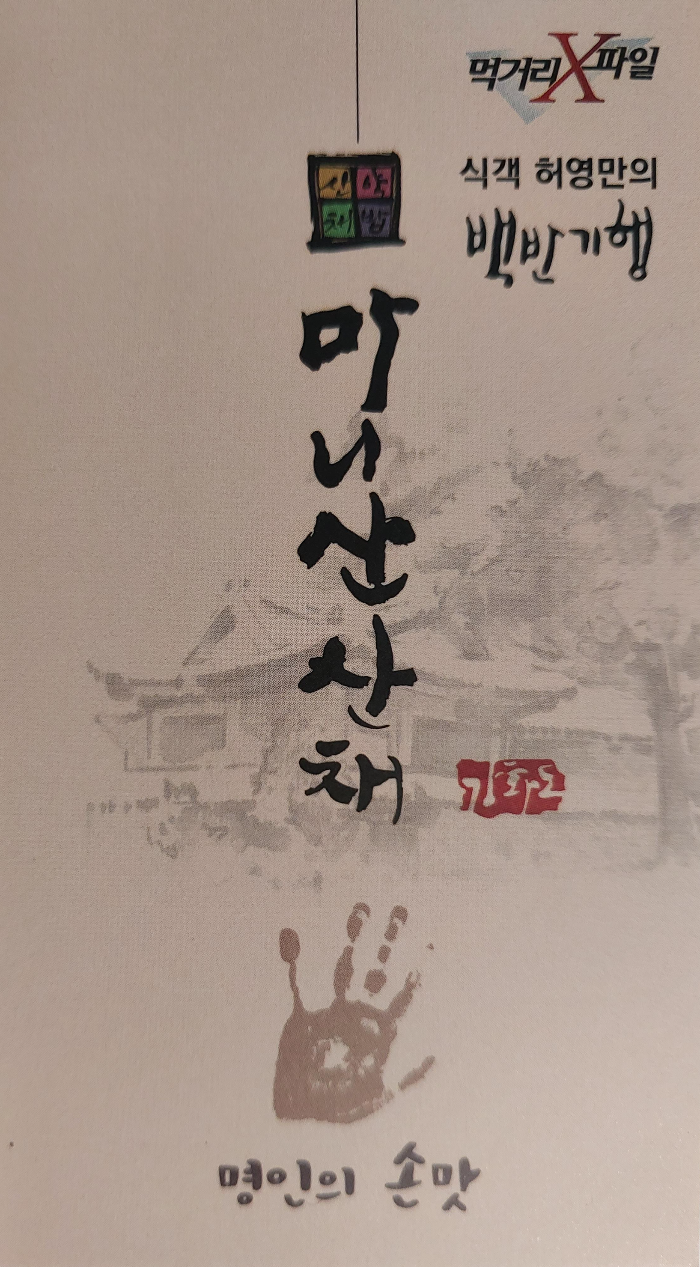 먹거리X파일
식객 허영만의
백반기행
마니산산채
강화도
명인의 손맛